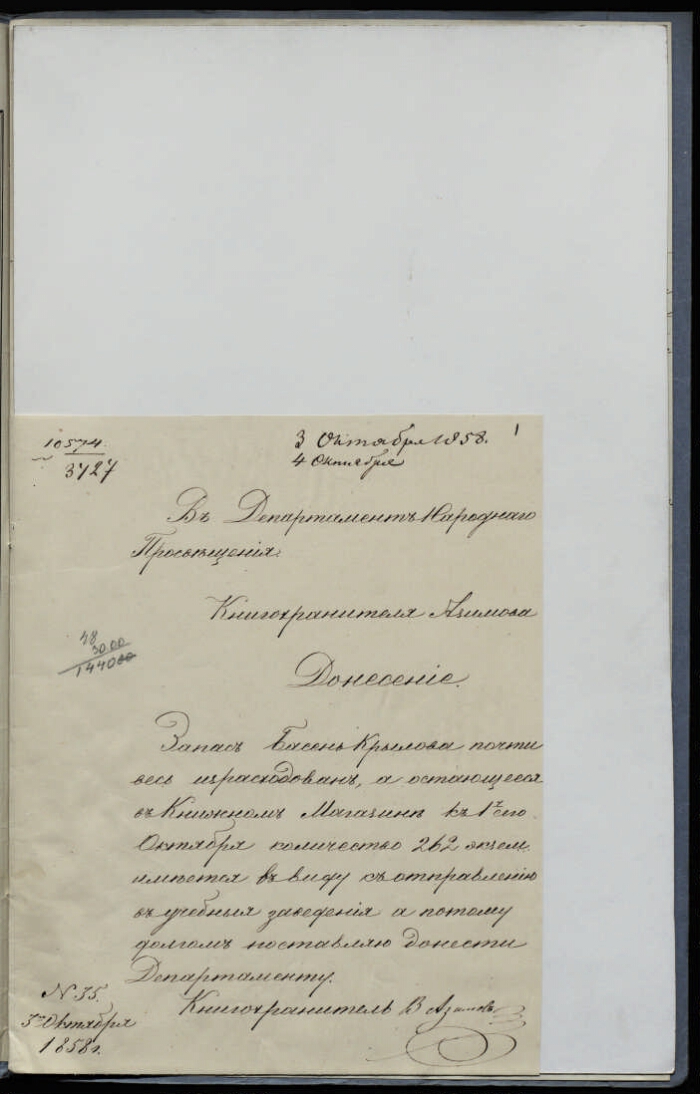 10574.
3727
3 Октября 1858.
1
4 Октября
Въ Департаментъ Народнаго
Просвѣщенія.
Книгохранителя Азимова
48
3000
144000
Донесеніе.
Запасъ Басень Крылова почти
весь израсходованъ, а остающееся
въ Книжномъ Магазинѣ къ 1му сего
Октября количество 262 экзем.
имѣется въ виду къ отправленію
въ учебныя заведенія а потому
долгомъ поставляю донести
Департаменту.
Книгохранитель В Азимовъ
N 35.
3го Октября
1858 г.